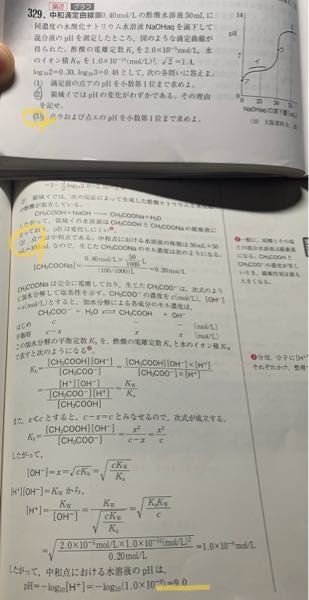 論述 グラフ
329. 中和滴定曲線 0.40mol/Lの酢酸水溶液50mLに
同濃度の水酸化ナトリウム水溶液 NaOHaq を滴下して
混合液のpHを測定したところ，図のような滴定曲線が
得られた。酢酸の電離定数Kaを2.0×10⁻⁵mol/L，水
のイオン積Kwを1.0×10⁻¹⁴(mol/L)²，√2=1.4，
log₁₀2=0.30，log₁₀3=0.48として，次の各問いに答えよ。
(1) 滴定前の点アのpHを小数第1位まで求めよ。
(2) 領域イではpHの変化がわずかである。その理由
を記せ。
(3) 点ウおよび点エのpHを小数第1位まで求めよ。
14
pH
7
ア
イ
0 25 50 75
NaOHaqの滴下量〔mL〕
② 領域イでは，次の反応によって生成した酢酸ナトリウムと
の酢酸が混在している。
CH₃COOH+NaOH → CH₃COONa+H₂O
したがって，領域イの水溶液は CH₃COOH と CH₃COONa の緩衝液に
なっており，pHは変化しにくい。
(3) 点ウは中和点である。中和点における水溶液の体積は50mL+50
mL=100mLなので，生じた CH₃COONa のモル濃度は次のようになる。
[CH₃COONa]= 0.40mol/L×50/1000 L / (100/1000)L =0.20mol/L
CH₃COONa は完全に電離しており，生じた CH₃COO⁻ は，次式のよう
に加水分解して塩基性を示す。CH₃COO⁻ の濃度を c〔mol/L〕，[OH⁻]
=x〔mol/L〕とすると，加水分解による各成分のモル濃度は，
CH₃COO⁻ + H₂O ⇄ CH₃COOH + OH⁻
はじめ c － － 〔mol/L〕
平衡時 c-x x x 〔mol/L〕
この加水分解の平衡定数 Kh を，酢酸の電離定数 Ka と水のイオン積 Kw
で表すと次のようになる。
Kh= [CH₃COOH][OH⁻]/[CH₃COO⁻] = [CH₃COOH][OH⁻]×[H⁺]/[CH₃COO⁻]×[H⁺]
= [H⁺][OH⁻] / ([CH₃COO⁻][H⁺]/[CH₃COOH]) = Kw/Ka
また，x≪c とすると，c-x≒c とみなせるので，次式が成立する。
Kh= [CH₃COOH][OH⁻]/[CH₃COO⁻] = x²/(c-x) = x²/c
したがって，
[OH⁻]=x=√(cKh)=√(cKw/Ka)
[H⁺][OH⁻]=Kw から，
[H⁺]= Kw/[OH⁻] = Kw/√(cKw/Ka) = √(KaKw/c)
=√(2.0×10⁻⁵mol/L×1.0×10⁻¹⁴(mol/L)²/0.20mol/L)=1.0×10⁻⁹mol/L
したがって，中和点における水溶液のpHは，
pH=-log₁₀[H⁺]=-log₁₀(1.0×10⁻⁹)=9.0